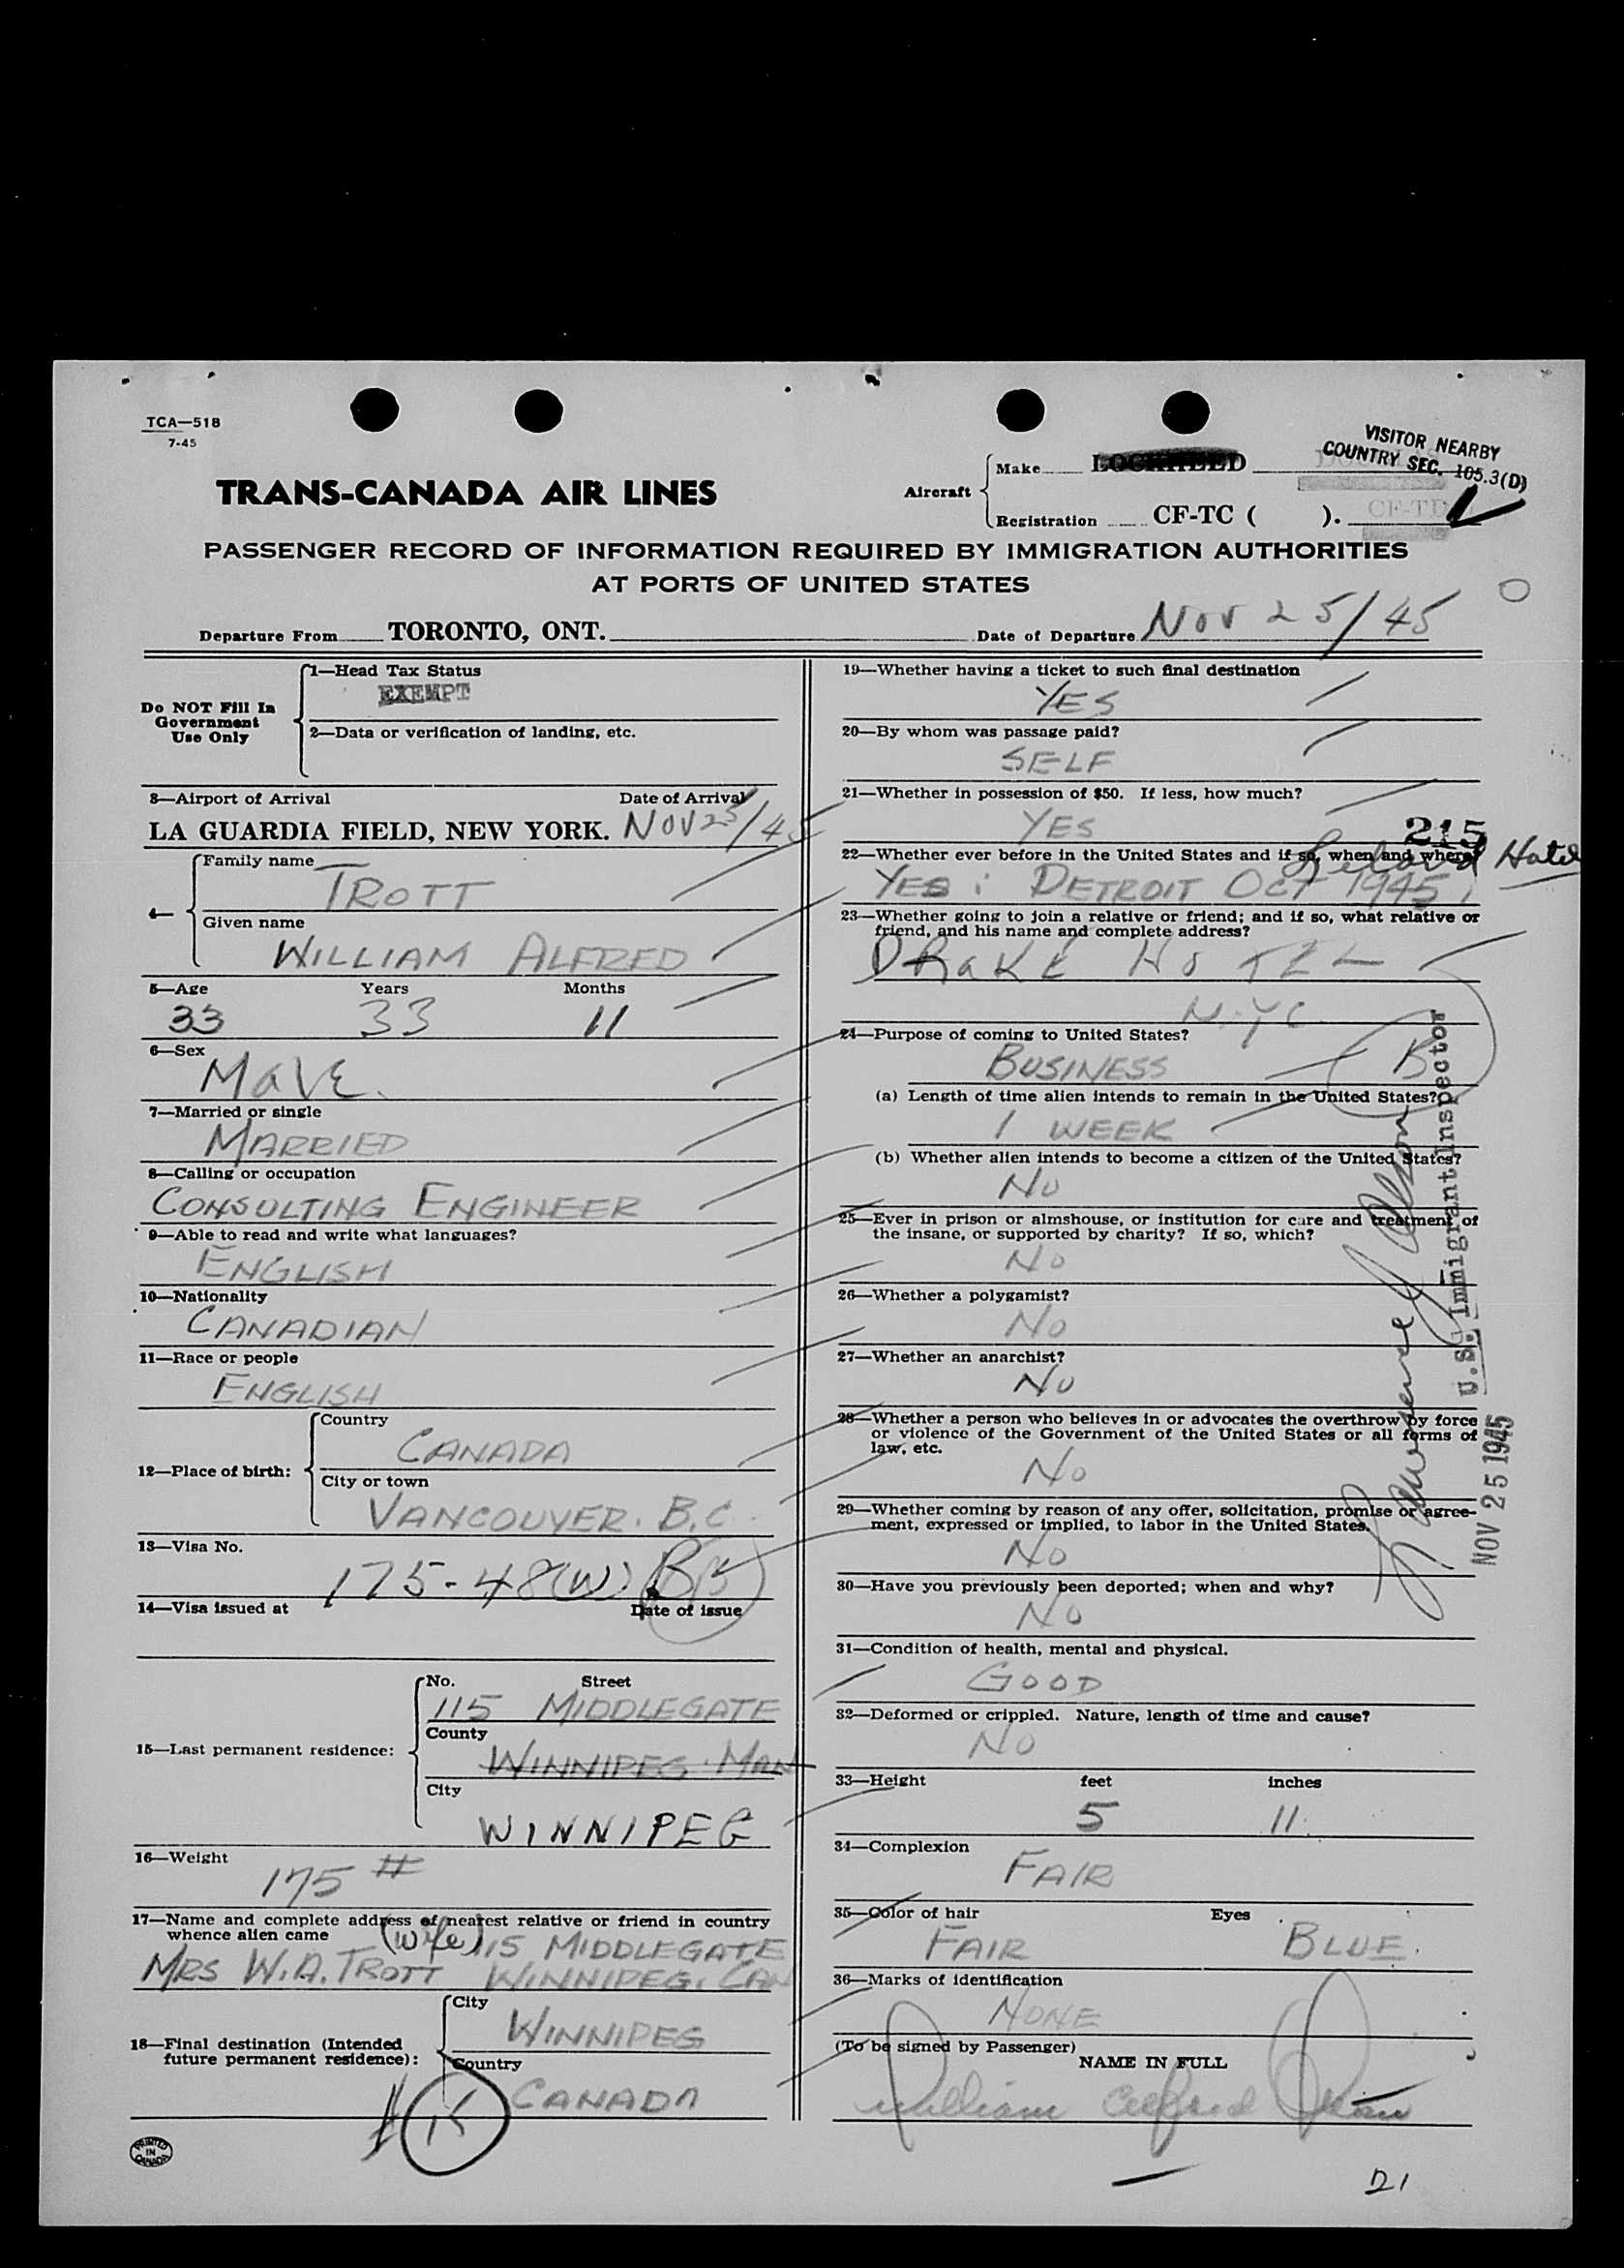 TCA—518
7-45
VISITOR NEARBY
COUNTRY SEC. 105.3(D)
TRANS-CANADA AIR LINES
Aircraft
Make LOCKHEED
Registration CF-TC ( ). CF-TD
PASSENGER RECORD OF INFORMATION REQUIRED BY IMMIGRATION AUTHORITIES
AT PORTS OF UNITED STATES
Departure From TORONTO, ONT. Date of Departure Nov 25/45
Do NOT Fill In
Government
Use Only
1—Head Tax Status
EXEMPT
2—Data or verification of landing, etc.
3—Airport of Arrival Date of Arrival
LA GUARDIA FIELD, NEW YORK. NOV 25/45
4—
Family name
TROTT
Given name
WILLIAM ALFRED
5—Age Years Months
33 33 11
6—Sex
MALE.
7—Married or single
MARRIED
8—Calling or occupation
CONSULTING ENGINEER
9—Able to read and write what languages?
ENGLISH
10—Nationality
CANADIAN
11—Race or people
ENGLISH
12—Place of birth:
Country
CANADA
City or town
VANCOUVER. B.C.
13—Visa No.
175-48(W) B
14—Visa issued at Date of issue
15—Last permanent residence:
No. Street
115 MIDDLEGATE
County
WINNIPEG. MAN
City
WINNIPEG
16—Weight
175 #
17—Name and complete address of nearest relative or friend in country
whence alien came
(wife) 115 MIDDLEGATE
MRS W.A. TROTT WINNIPEG. CAN
18—Final destination (Intended
future permanent residence):
City
WINNIPEG
Country
CANADA
PRINTED
IN
CANADA
19—Whether having a ticket to such final destination
YES
20—By whom was passage paid?
SELF
21—Whether in possession of $50. If less, how much?
YES
215
22—Whether ever before in the United States and if so, when and where?
Hotel
YES: DETROIT OCT 1945
23—Whether going to join a relative or friend; and if so, what relative or
friend, and his name and complete address?
DRAKE HOTEL
N.Y.C.
24—Purpose of coming to United States?
BUSINESS B
(a) Length of time alien intends to remain in the United States?
1 WEEK
(b) Whether alien intends to become a citizen of the United States?
NO
25—Ever in prison or almshouse, or institution for care and treatment of
the insane, or supported by charity? If so, which?
NO
26—Whether a polygamist?
NO
27—Whether an anarchist?
NO
28—Whether a person who believes in or advocates the overthrow by force
or violence of the Government of the United States or all forms of
law, etc.
NO
29—Whether coming by reason of any offer, solicitation, promise or agree-
ment, expressed or implied, to labor in the United States.
NO
30—Have you previously been deported; when and why?
NO
31—Condition of health, mental and physical.
GOOD
32—Deformed or crippled. Nature, length of time and cause?
NO
33—Height feet inches
5 11
34—Complexion
FAIR
35—Color of hair Eyes
FAIR BLUE.
36—Marks of identification
NONE
(To be signed by Passenger)
NAME IN FULL
William Alfred Trott
U.S. Immigrant Inspector
NOV 25 1945
21